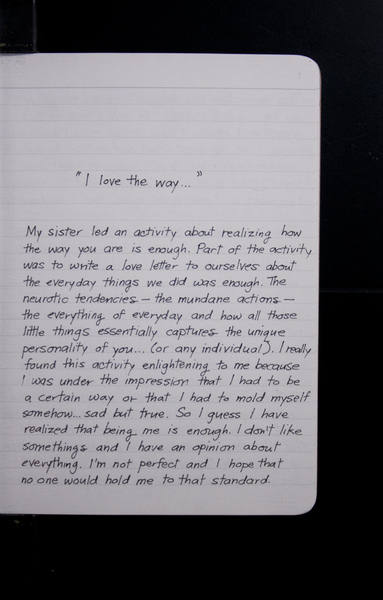 "I love the way..."
My sister led an activity about realizing how
the way you are is enough. Part of the activity
was to write a love letter to ourselves about
the everyday things we did was enough. The
neurotic tendencies — the mundane actions —
the everything of everyday and how all those
little things essentially captures the unique
personality of you... (or any individual). I really
found this activity enlightening to me because
I was under the impression that I had to be
a certain way or that I had to mold myself
somehow... sad but true. So I guess I have
realized that being me is enough. I don't like
somethings and I have an opinion about
everything. I'm not perfect and I hope that
no one would hold me to that standard.